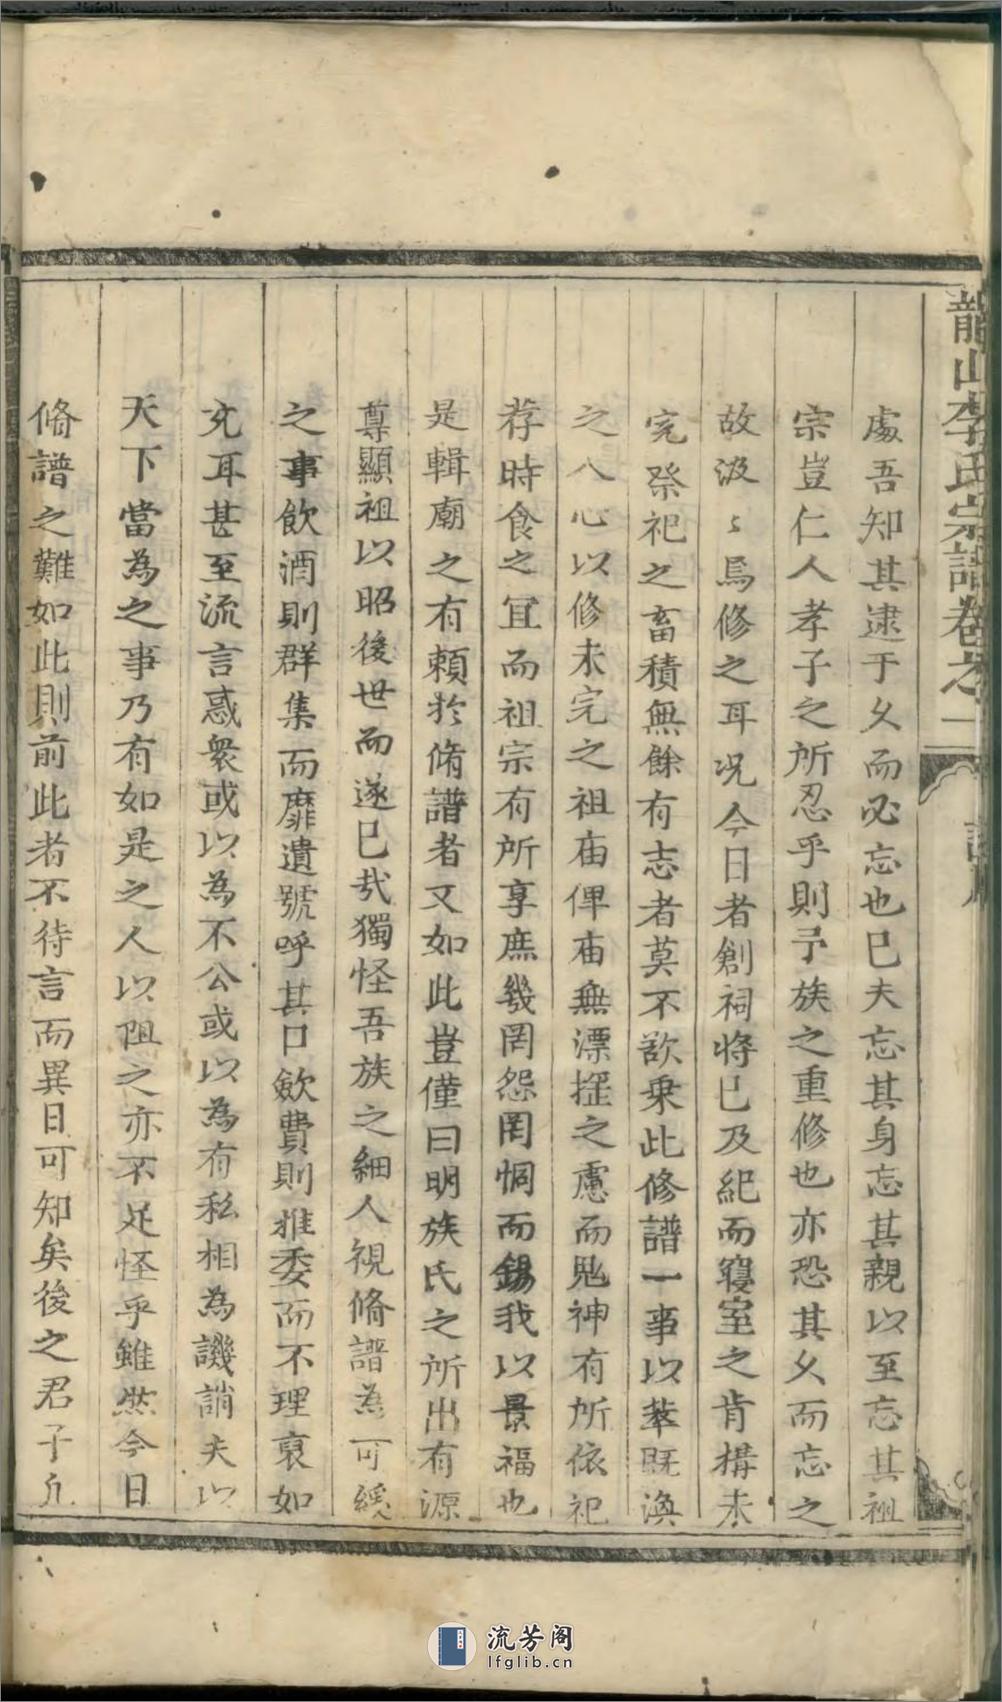 龍山李氏宗譜卷之一 譜序
處吾知其逮于乆而必忘也巳夫忘其身忘其親以至忘其祖
宗豈仁人孝子之所忍乎則予族之重修也亦恐其乆而忘之
故汲〻焉修之耳况今日者創祠將巳及紀而寢室之肯構未
完祭祀之畜積無餘有志者莫不欲乗此修譜一事以萃既渙
之人心以修未完之祖庙俾庙無漂搖之慮而鬼神有所依祀
荐時食之宜而祖宗有所享庶幾罔怨罔恫而錫我以景福也
是輯廟之有賴於脩譜者又如此豈僅曰明族氏之所出有源
尊顯祖以昭後世而遂巳㢤獨怪吾族之細人視脩譜為可緩
之事飲酒則群集而靡遺號呼其口歛費則推委而不理裒如
充耳甚至流言惑衆或以為不公或以為有私相為譏誚夫以
天下當為之事乃有如是之人以阻之亦不足怪乎雖然今日
脩譜之難如此則前此者不待言而異日可知矣後之君子凢
流芳阁
lfglib.cn